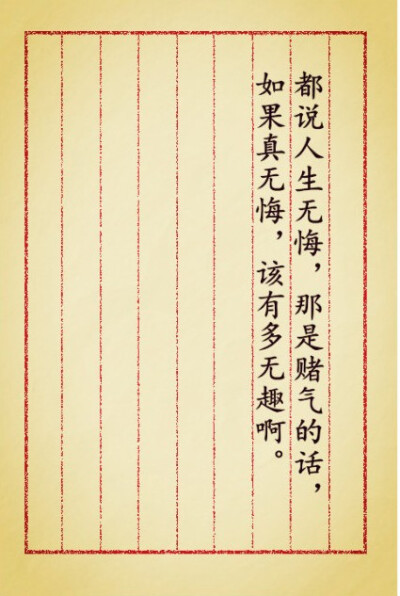 都说人生无悔，那是赌气的话，
如果真无悔，该有多无趣啊。